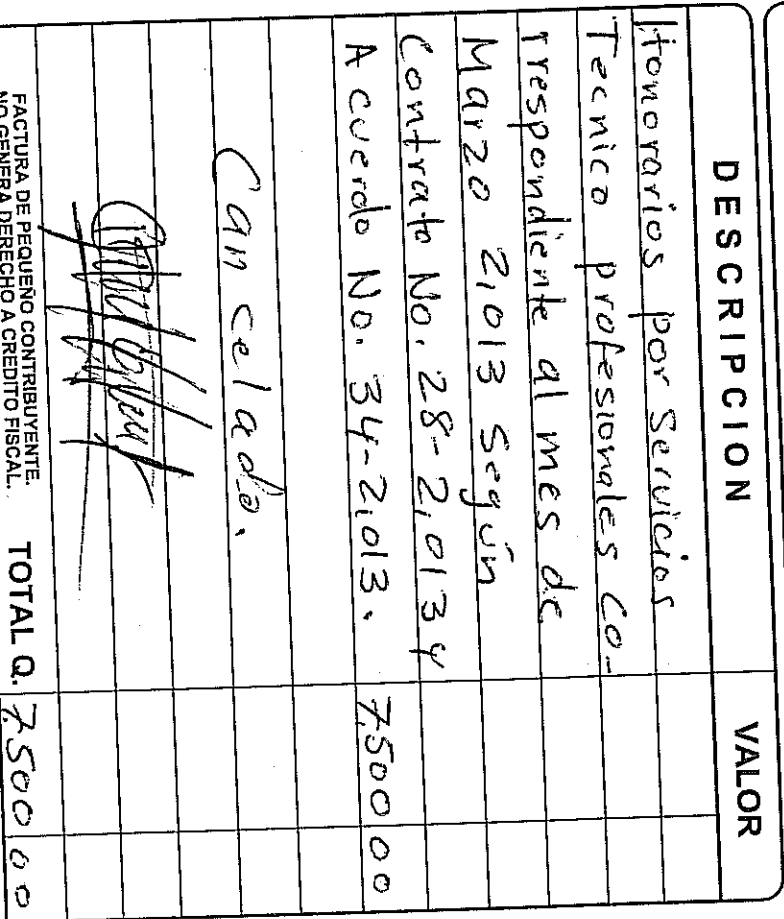 DESCRIPCION VALOR
Honorarios por Servicios
Tecnico profesionales Co-
rrespondiente al mes de
Marzo 2,013 Según
Contrato No. 28-2,013 y
Acuerdo No. 34-2,013. 7,500 00
Cancelado.
FACTURA DE PEQUEÑO CONTRIBUYENTE.
NO GENERA DERECHO A CREDITO FISCAL.
TOTAL Q. 7,500 00